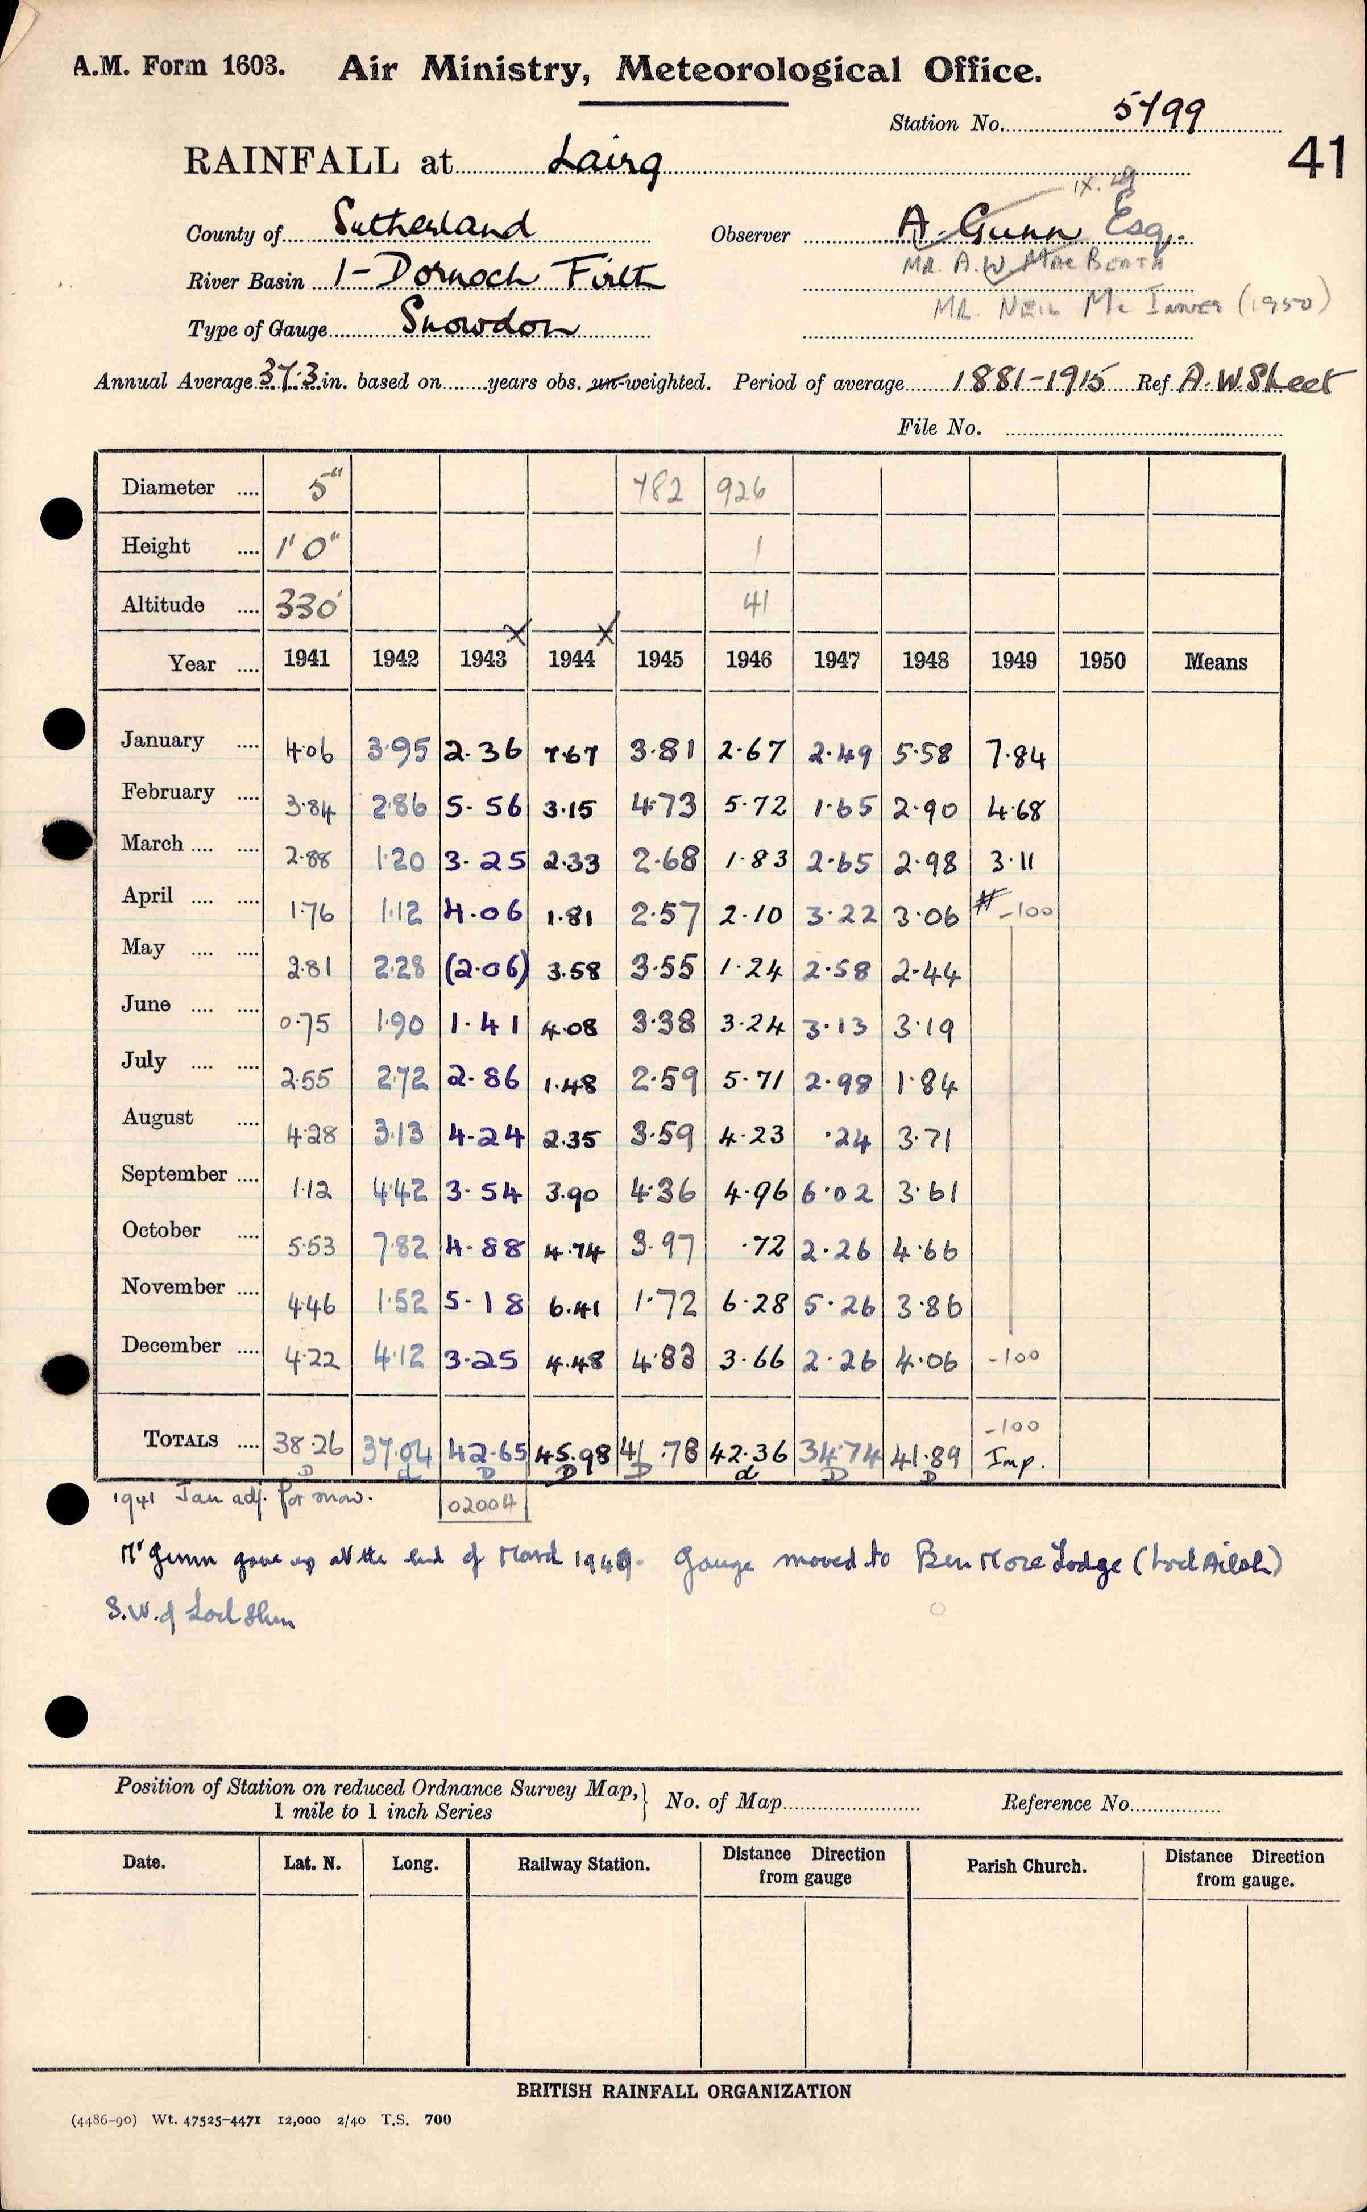 A.M. Form 1603. Air Ministry, Meteorological Office.
Station No. 5799
41
RAINFALL at Lairg
IX. 49
County of Sutherland Observer A. Gunn Esq.
MR. A.W. MacBEATH
River Basin 1 - Dornoch Firth
MR. NEIL Mc INNES (1950)
Type of Gauge Snowdon
Annual Average 37.3 in. based on years obs. un-weighted. Period of average 1881-1915 Ref A.W. Sheet
File No.
Diameter 5" 782 926
Height 1' 0" 1
Altitude 330' 41
x x
Year 1941 1942 1943 1944 1945 1946 1947 1948 1949 1950 Means
January 4.06 3.95 2.36 7.67 3.81 2.67 2.49 5.58 7.84
February 3.84 2.86 5.56 3.15 4.73 5.72 1.65 2.90 4.68
March 2.88 1.20 3.25 2.33 2.68 1.83 2.65 2.98 3.11
April 1.76 1.12 4.06 1.81 2.57 2.10 3.22 3.06 # -100
May 2.81 2.28 (2.06) 3.58 3.55 1.24 2.58 2.44
June 0.75 1.90 1.41 4.08 3.38 3.24 3.13 3.19
July 2.55 2.72 2.86 1.48 2.59 5.71 2.98 1.84
August 4.28 3.13 4.24 2.35 3.59 4.23 .24 3.71
September 1.12 4.42 3.54 3.90 4.36 4.96 6.02 3.61
October 5.53 7.82 4.88 4.74 3.97 .72 2.26 4.66
November 4.46 1.52 5.18 6.41 1.72 6.28 5.26 3.86
December 4.22 4.12 3.25 4.48 4.83 3.66 2.26 4.06 -100
-100
TOTALS 38.26 37.04 42.65 45.98 41.78 42.36 34.74 41.89 Imp.
D d D D D d D D
1941 Jan adj. for snow. 02004
Mr Gunn gave up at the end of March 1949. Gauge moved to Ben More Lodge (Loch Ailsh)
S.W. of Loch Shin
Position of Station on reduced Ordnance Survey Map, } No. of Map Reference No.
1 mile to 1 inch Series
Date. Lat. N. Long. Railway Station. Distance Direction from gauge Parish Church. Distance Direction from gauge.
BRITISH RAINFALL ORGANIZATION
(4486-90) Wt. 47525-4471 12,000 2/40 T.S. 700